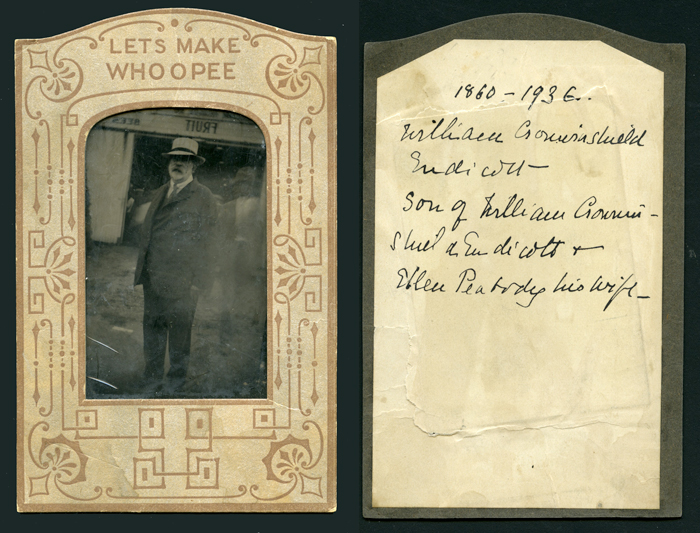 LETS MAKE
WHOOPEE
FRUIT
1860 - 1936..
William Crowninshield
Endicott —
Son of William Crownin-
shield Endicott +
Ellen Peabody his wife —